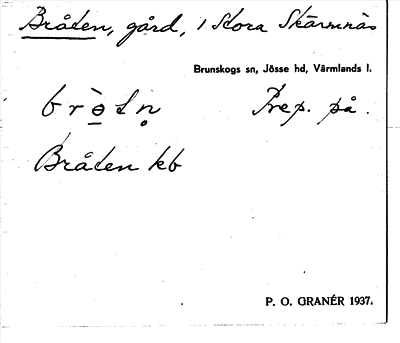 Bråten, gård, i Stora Skärmnäs
Brunskogs sn, Jösse hd, Värmlands l.
Prep. på.
Bråten kb
P. O. GRANÉR 1937.